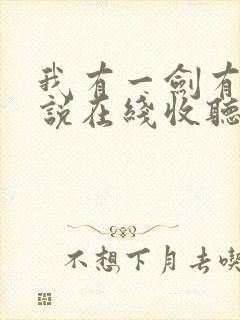 我有一劍有
說在綫收聽
不想下月去喫